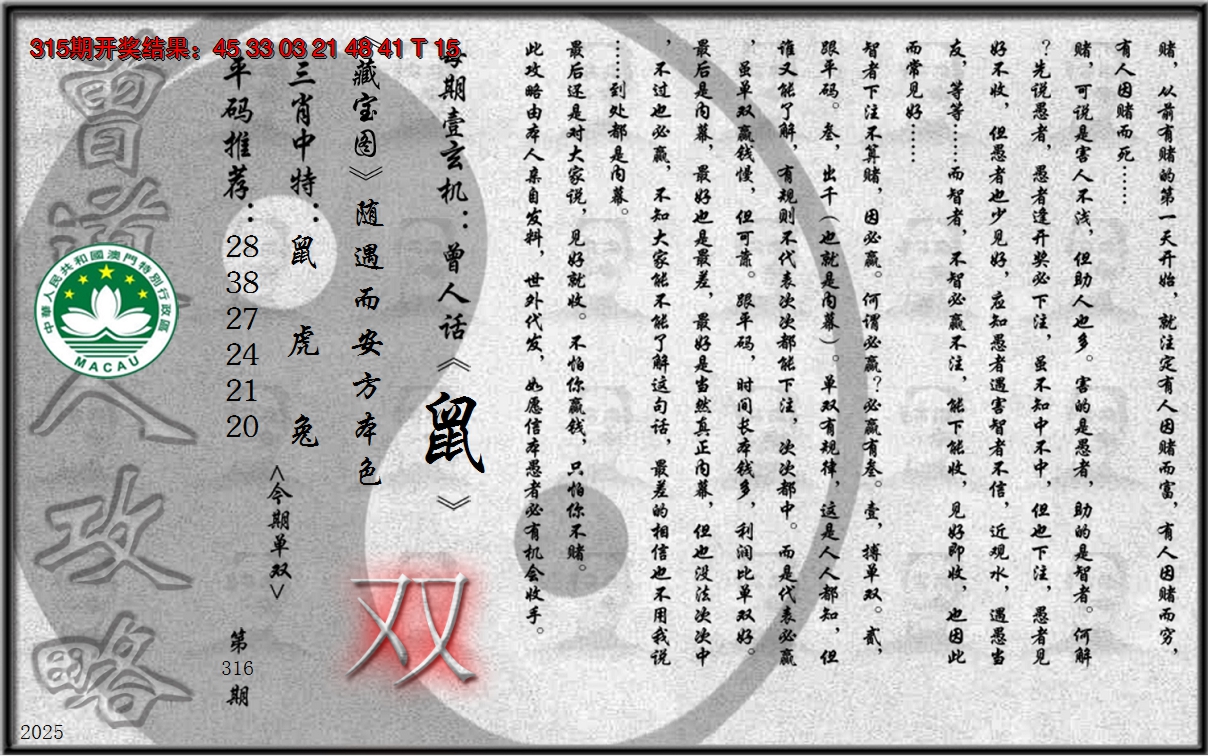 315期开奖结果：45 33 03 21 48 41 T 15
赌，从前有赌的第一天开始，就注定有人因赌而富，有人因赌而穷，
有人因赌而死……
赌，可说是害人不浅，但助人也多。害的是愚者，助的是智者。何解
？先说愚者，愚者逢开奖必下注，虽不知中不中，但也下注，愚者见
好不收，但愚者也少见好，应知愚者遇害智者不信，近观水，遇愚当
友，等等……而智者，不智必赢不注，能下能收，见好即收，也因此
而常见好……
智者下注不算赌，因必赢。何谓必赢？必赢有叁。壹，搏单双。贰，
跟平码。叁，出千（也就是内幕）。单双有规律，这是人人都知，但
谁又能了解，有规则不代表次次都能下注，次次都中。而是代表必赢
，虽单双赢钱慢，但可靠。跟平码，时间长本钱多，利润比单双好。
最后是内幕，最好也是最差，最好是当然真正内幕，但也没法次次中
，不过也必赢，不知大家能不能了解这句话，最差的相信也不用我说
……到处都是内幕。
最后还是对大家说，见好就收。不怕你赢钱，只怕你不赌。
此攻略由本人亲自发料，世外代发，如愿信本愚者必有机会收手。
每期壹玄机：曾人话《鼠》
《藏宝图》随遇而安方本色
双
三肖中特：鼠 虎 兔
<今期单双>
平码推荐：28 38 27 24 21 20
第316期
曾道人攻略
中華人民共和國澳門特別行政區
MACAU
2025